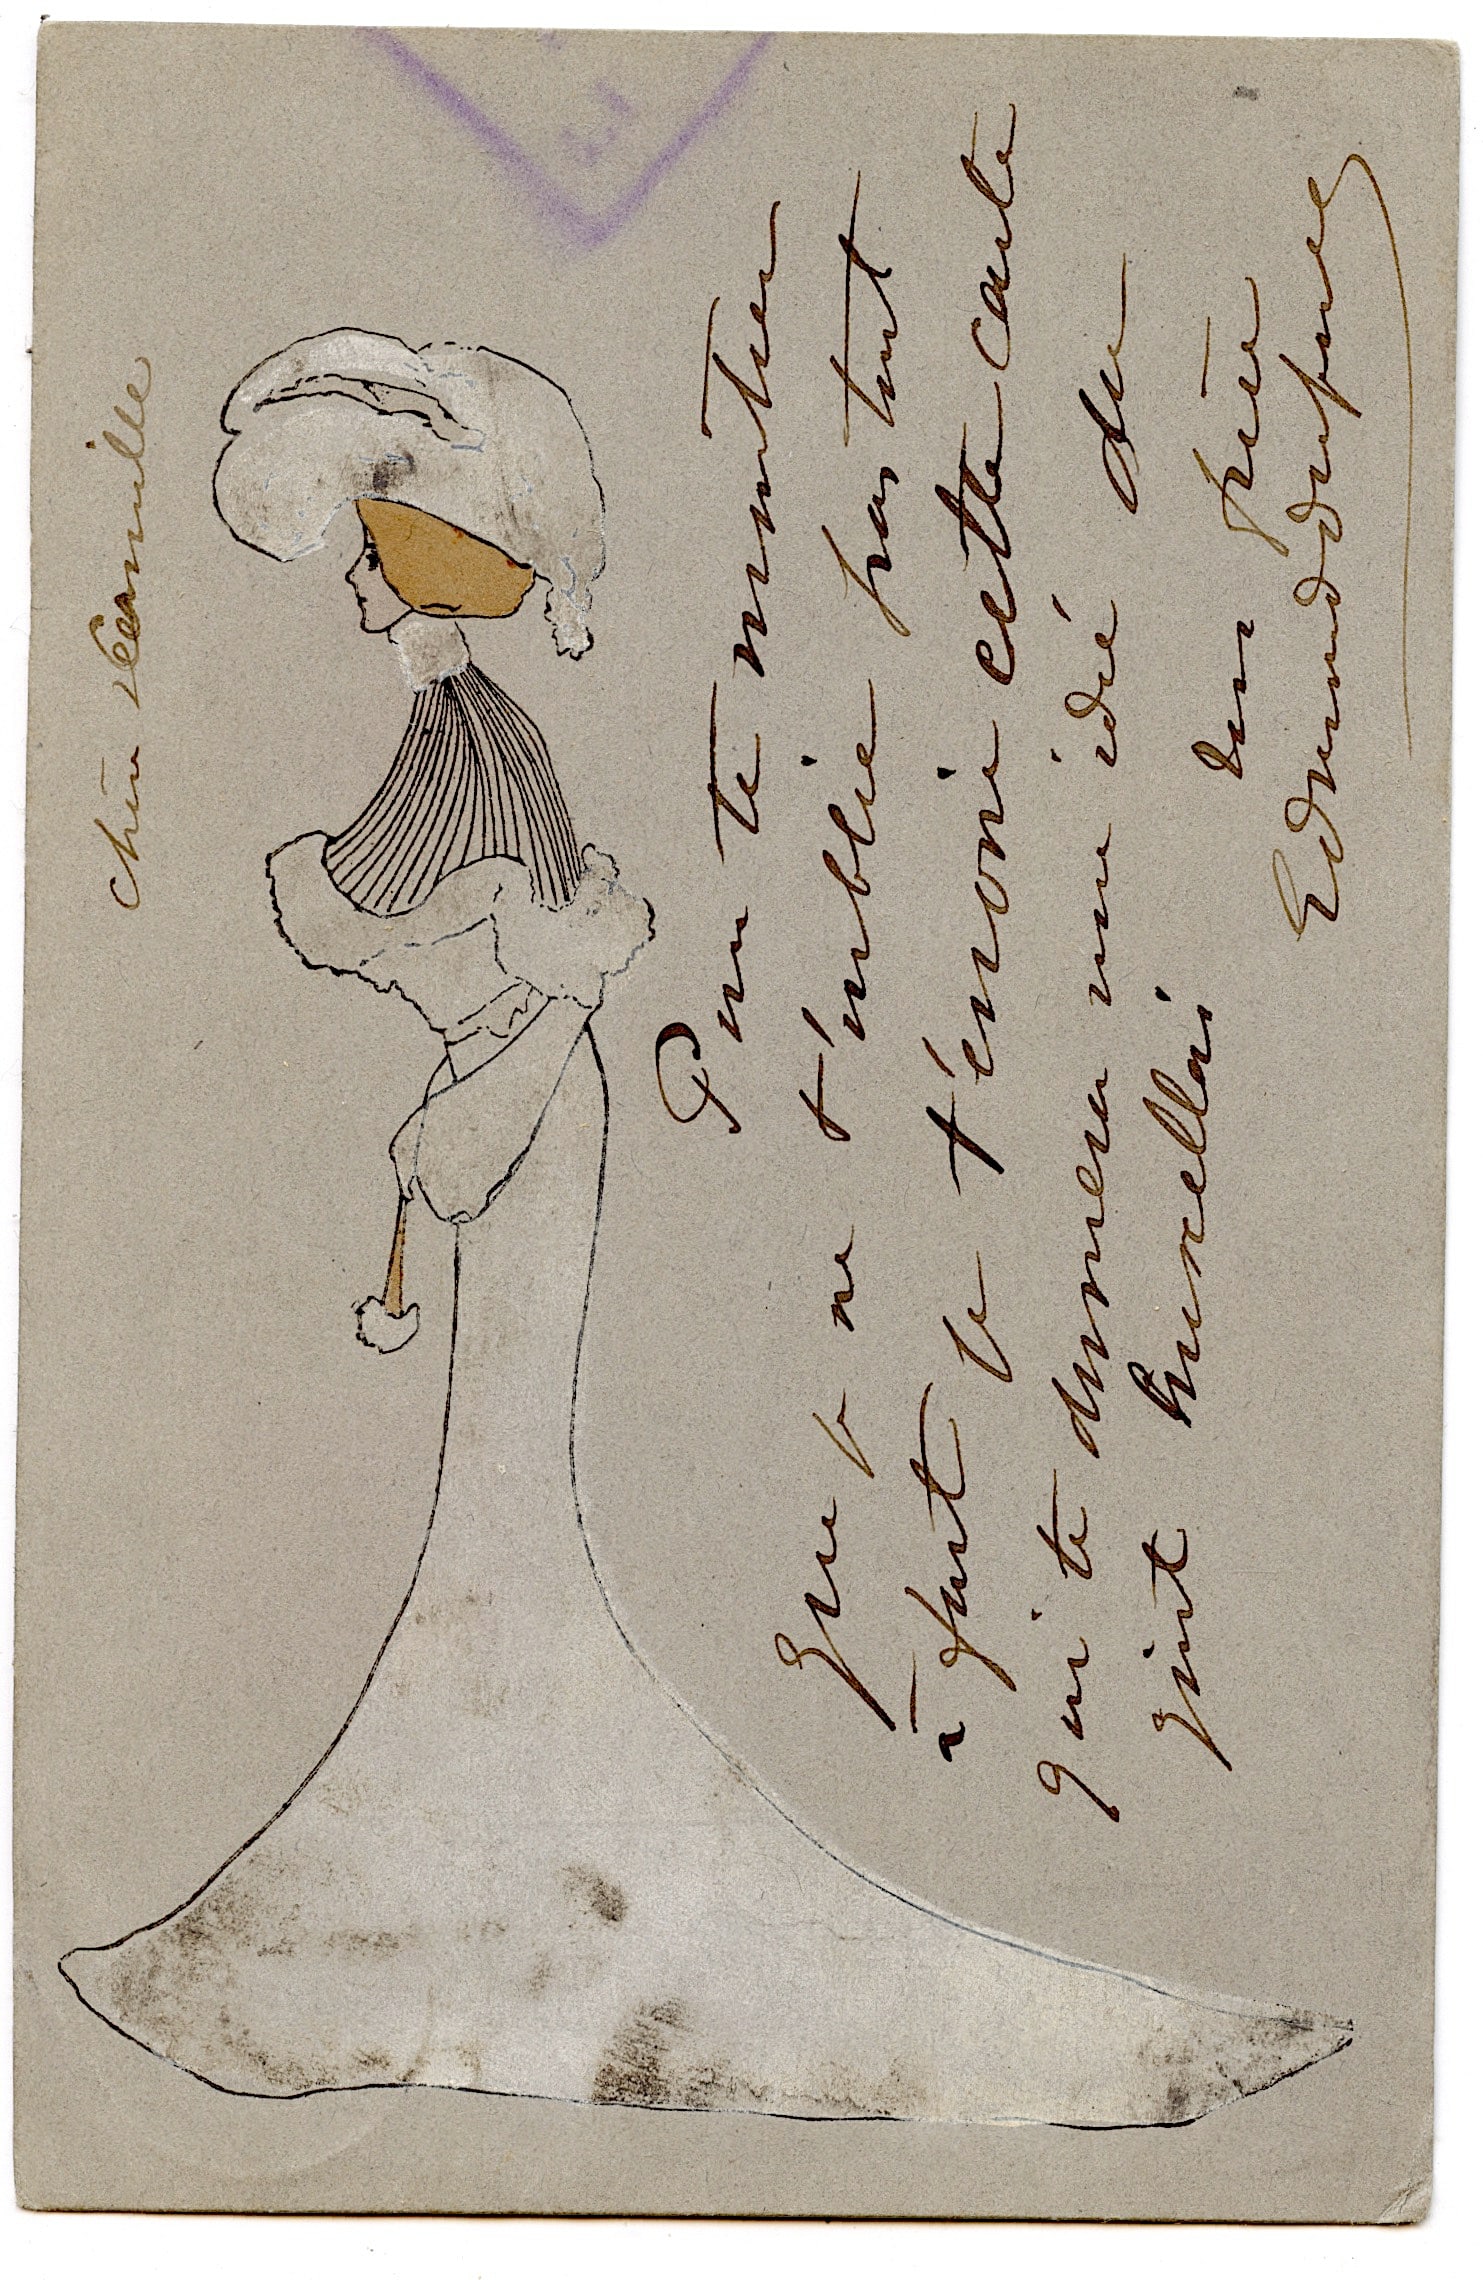 Chère Camille
Pour te montrer
que je ne t'oublie pas tout
à fait je t'envoie cette carte
qui te donnera une idé du
goût bruxellois
ton frère
Edmond